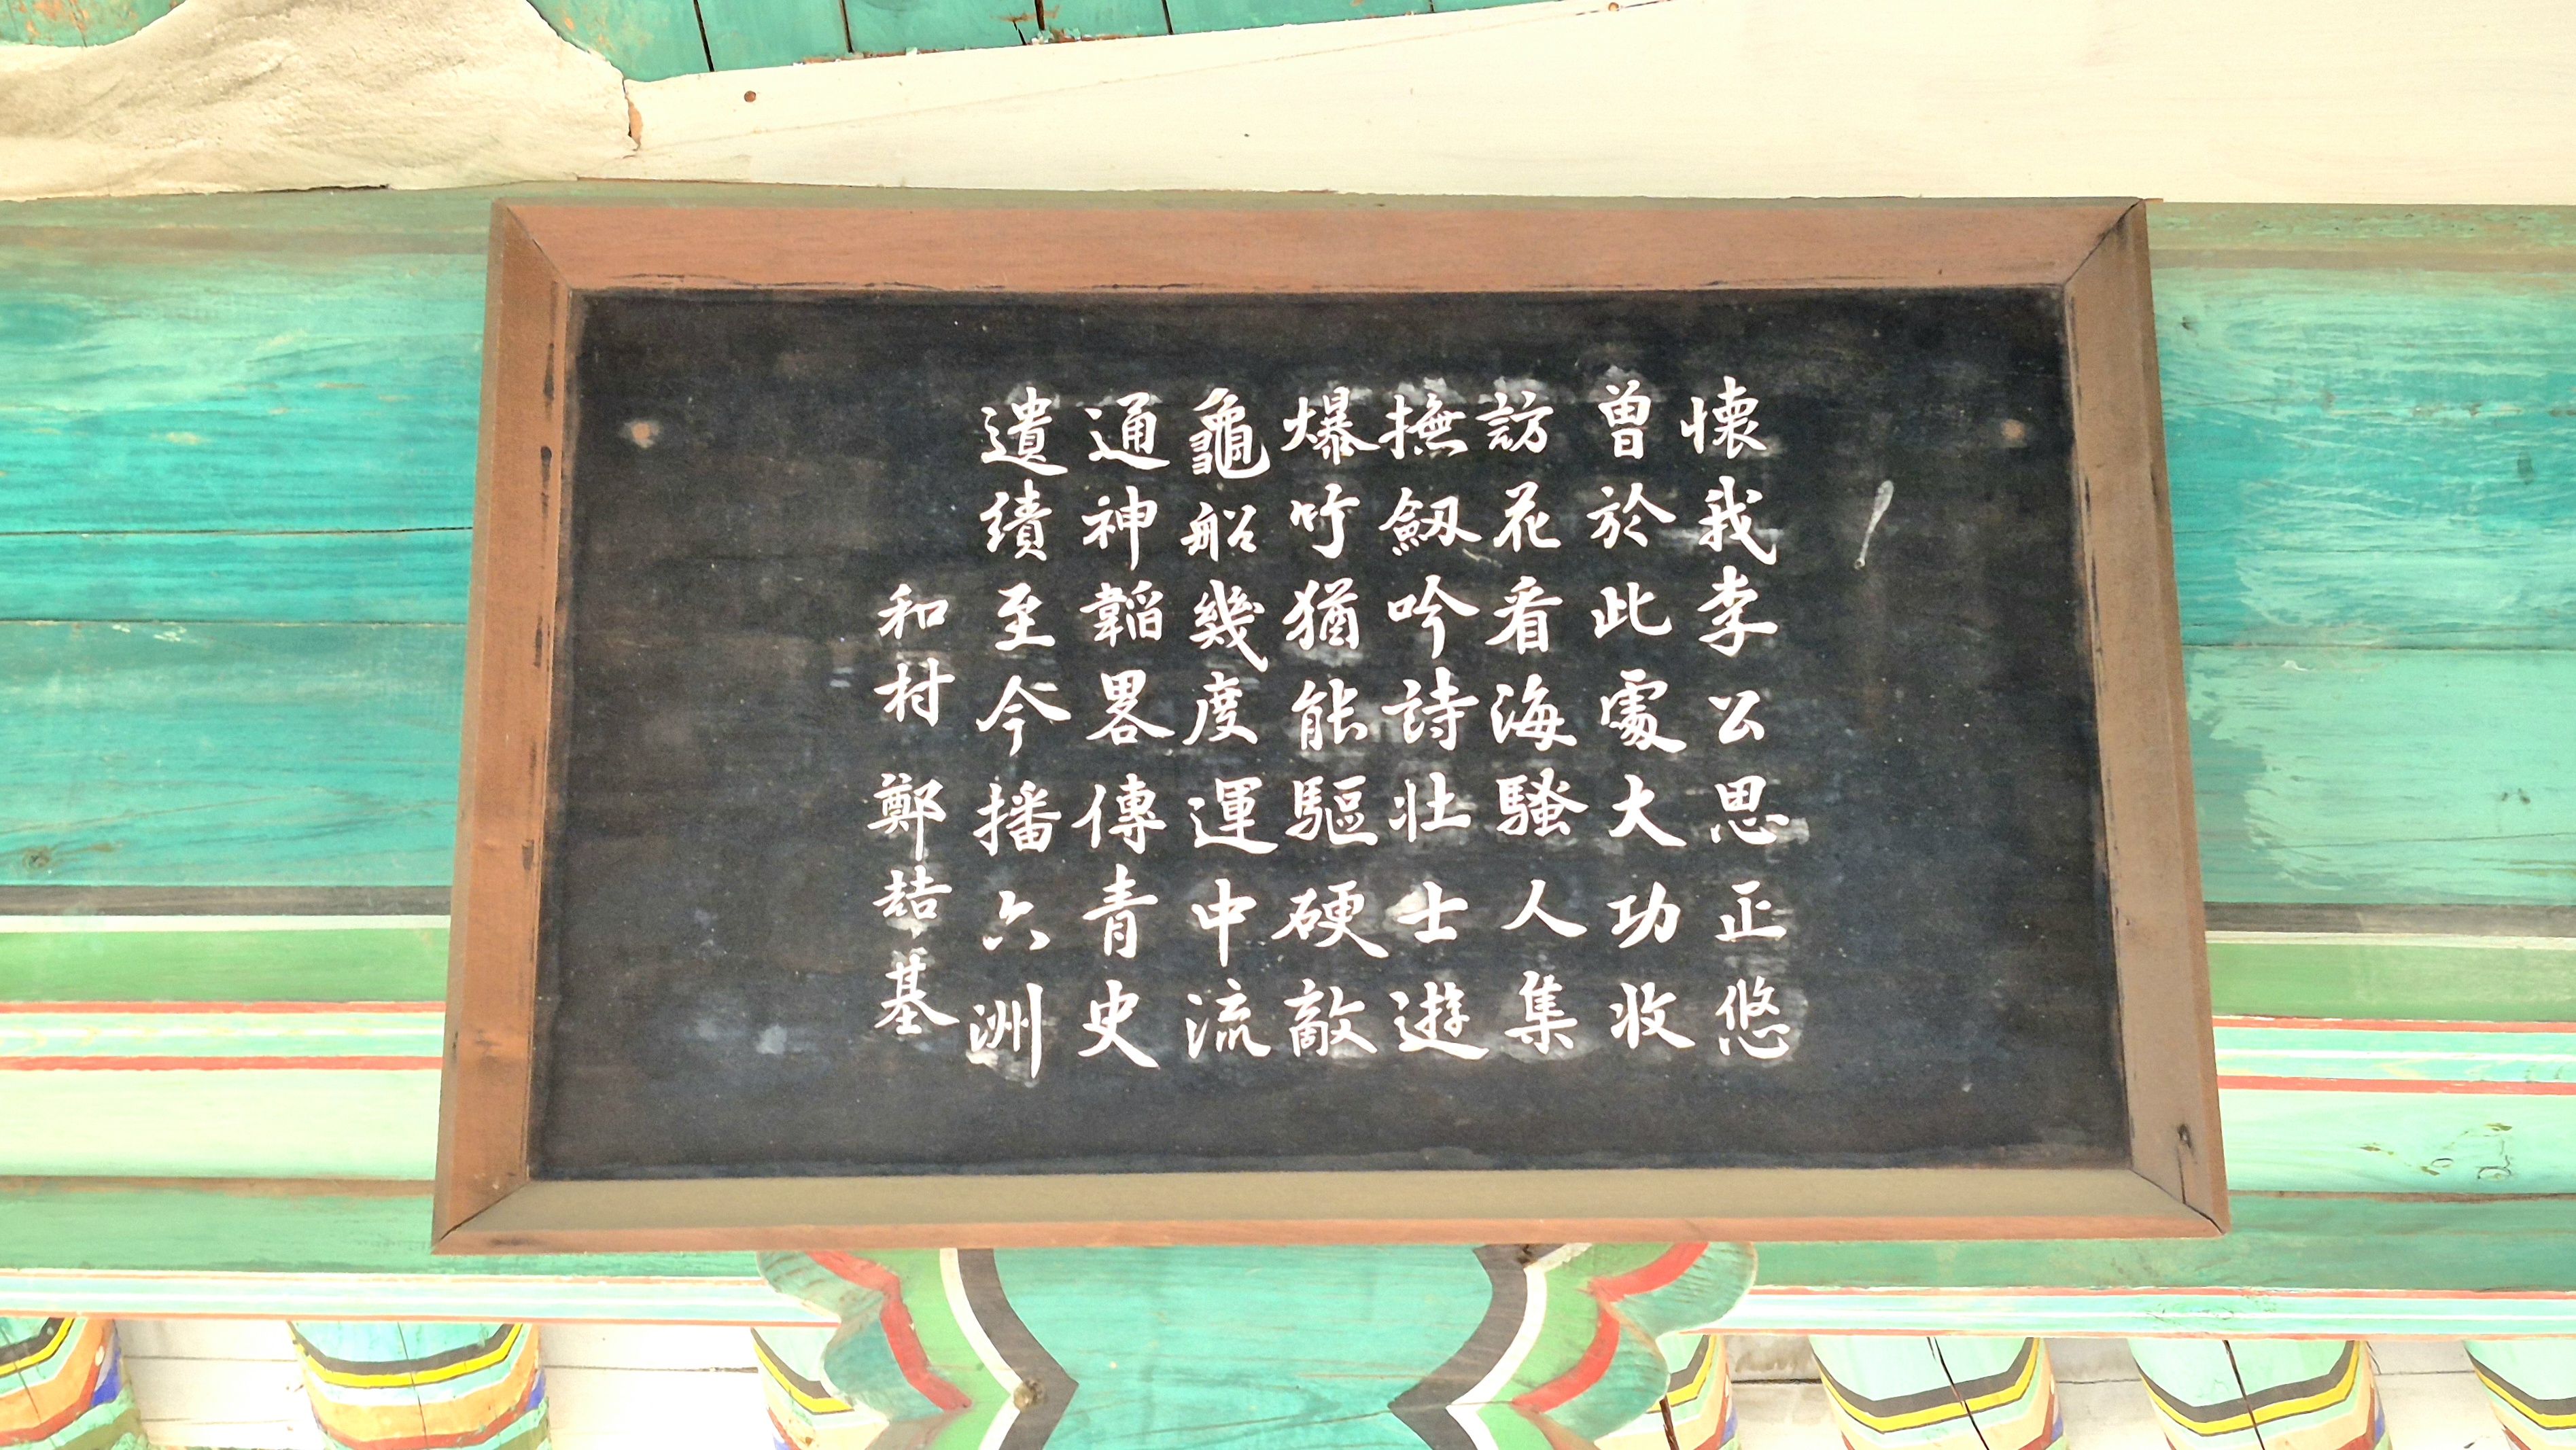 懷我李公思正悠
曾於此處大功收
訪花看海騷人集
撫劔吟詩壯士遊
爆竹猶能驅硬敵
龜船幾度運中流
通神韜畧傳青史
遺績至今播六洲
和村 鄭喆基